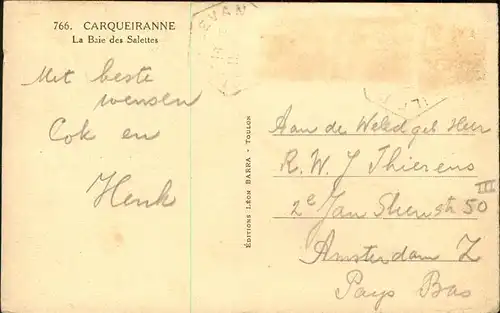 766. CARQUEIRANNE
La Baie des Salettes
Met beste
wensen
Cok en
Henk
ÉDITIONS LÉON BARRA - TOULON
Aan de Weled gel Heer
R. W. J Thierens
2e Jan Steenstr 50 III
Amsterdam Z
Pays Bas